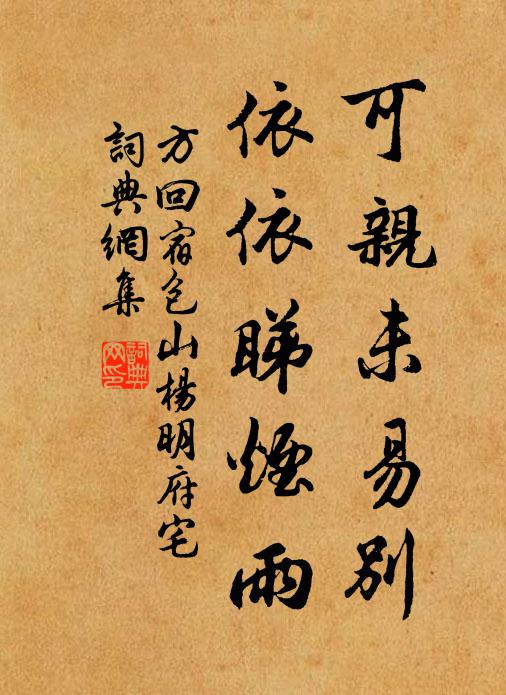 可親未易別
依依睇煙雨
方回宿包山楊明府宅
詞典網集
詞典
网印